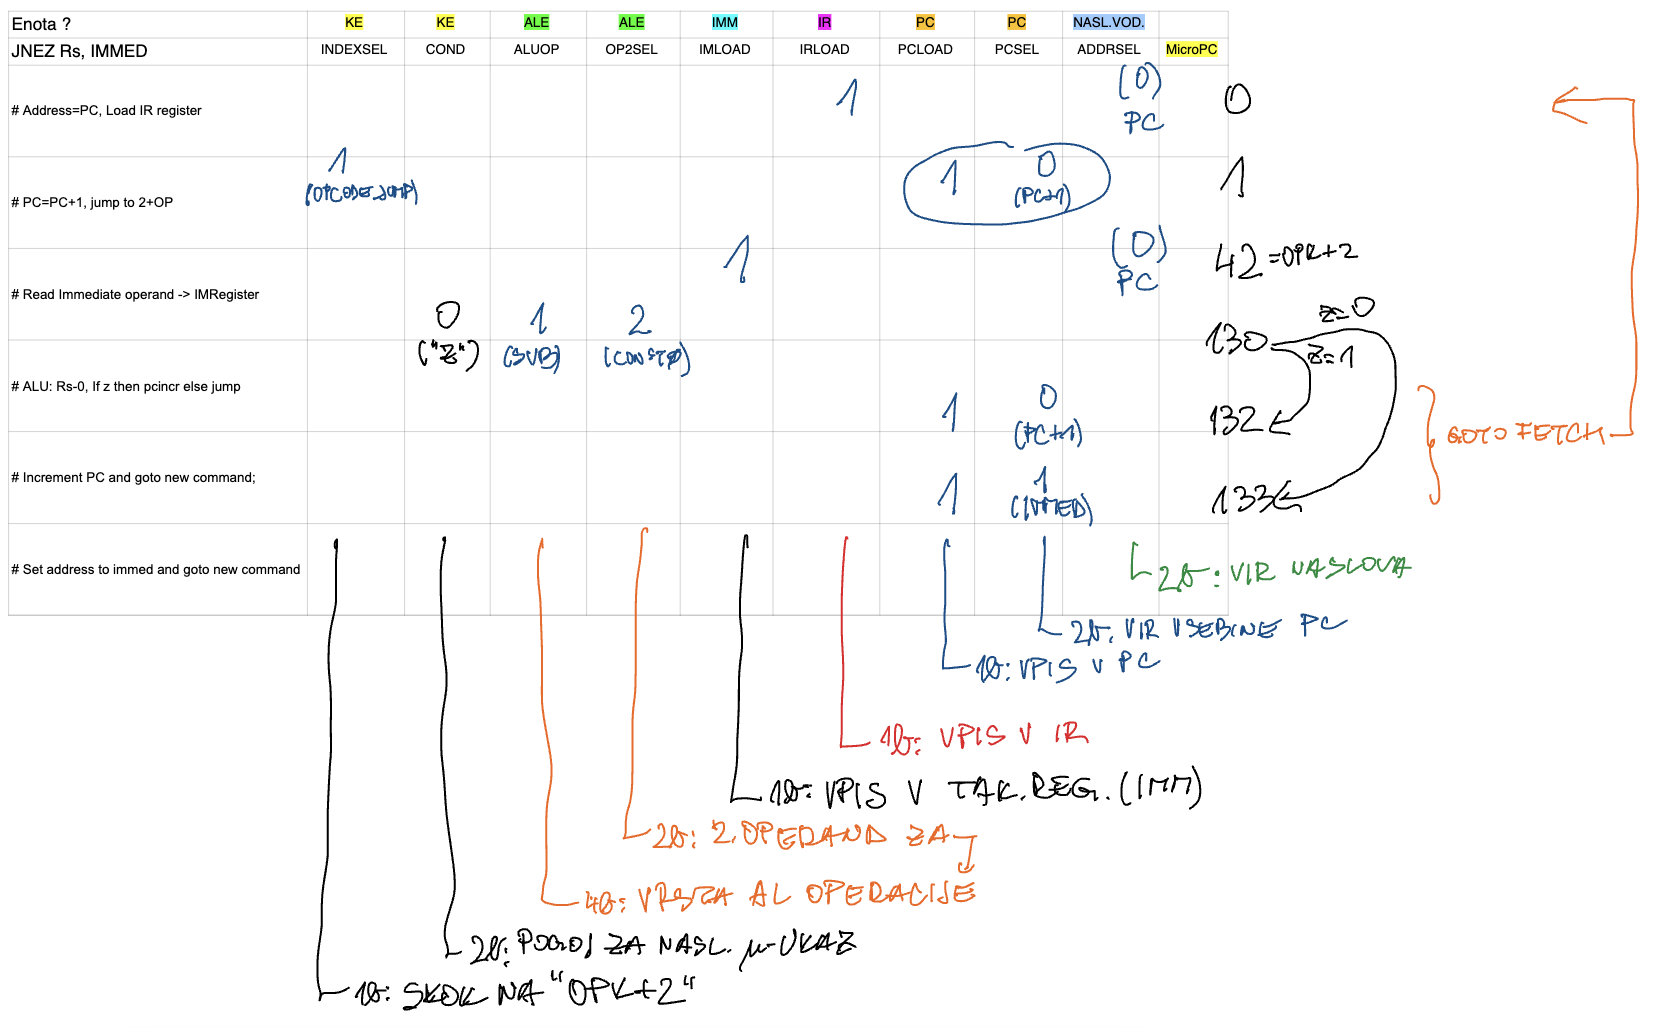 Enota ? KE KE ALE ALE IMM IR PC PC NASL.VOD.
JNEZ Rs, IMMED INDEXSEL COND ALUOP OP2SEL IMLOAD IRLOAD PCLOAD PCSEL ADDRSEL MicroPC
# Address=PC, Load IR register 1 (0) 0
PC
1 1 0 1
# PC=PC+1, jump to 2+OP (OPCODE_JUMP) (PC+1)
1 (0) 42 =OPK+2
# Read Immediate operand -> IMRegister PC
0 1 2 130 z=0
("Z") (SUB) (CONST0) z=1
# ALU: Rs-0, If z then pcincr else jump
1 0 132
(PC+1) GOTO FETCH
# Increment PC and goto new command;
1 1 133
(IMMED)
# Set address to immed and goto new command
2b: VIR NASLOVA
2b: VIR VSEBINE PC
1b: VPIS V PC
1b: VPIS V IR
1b: VPIS V TAK.REG.(IMM)
2b: 2.OPERAND ZA
4b: VRSTA AL OPERACIJE
2b: POGOJ ZA NASL. µ-UKAZ
1b: SKOK NA "OPK+2"